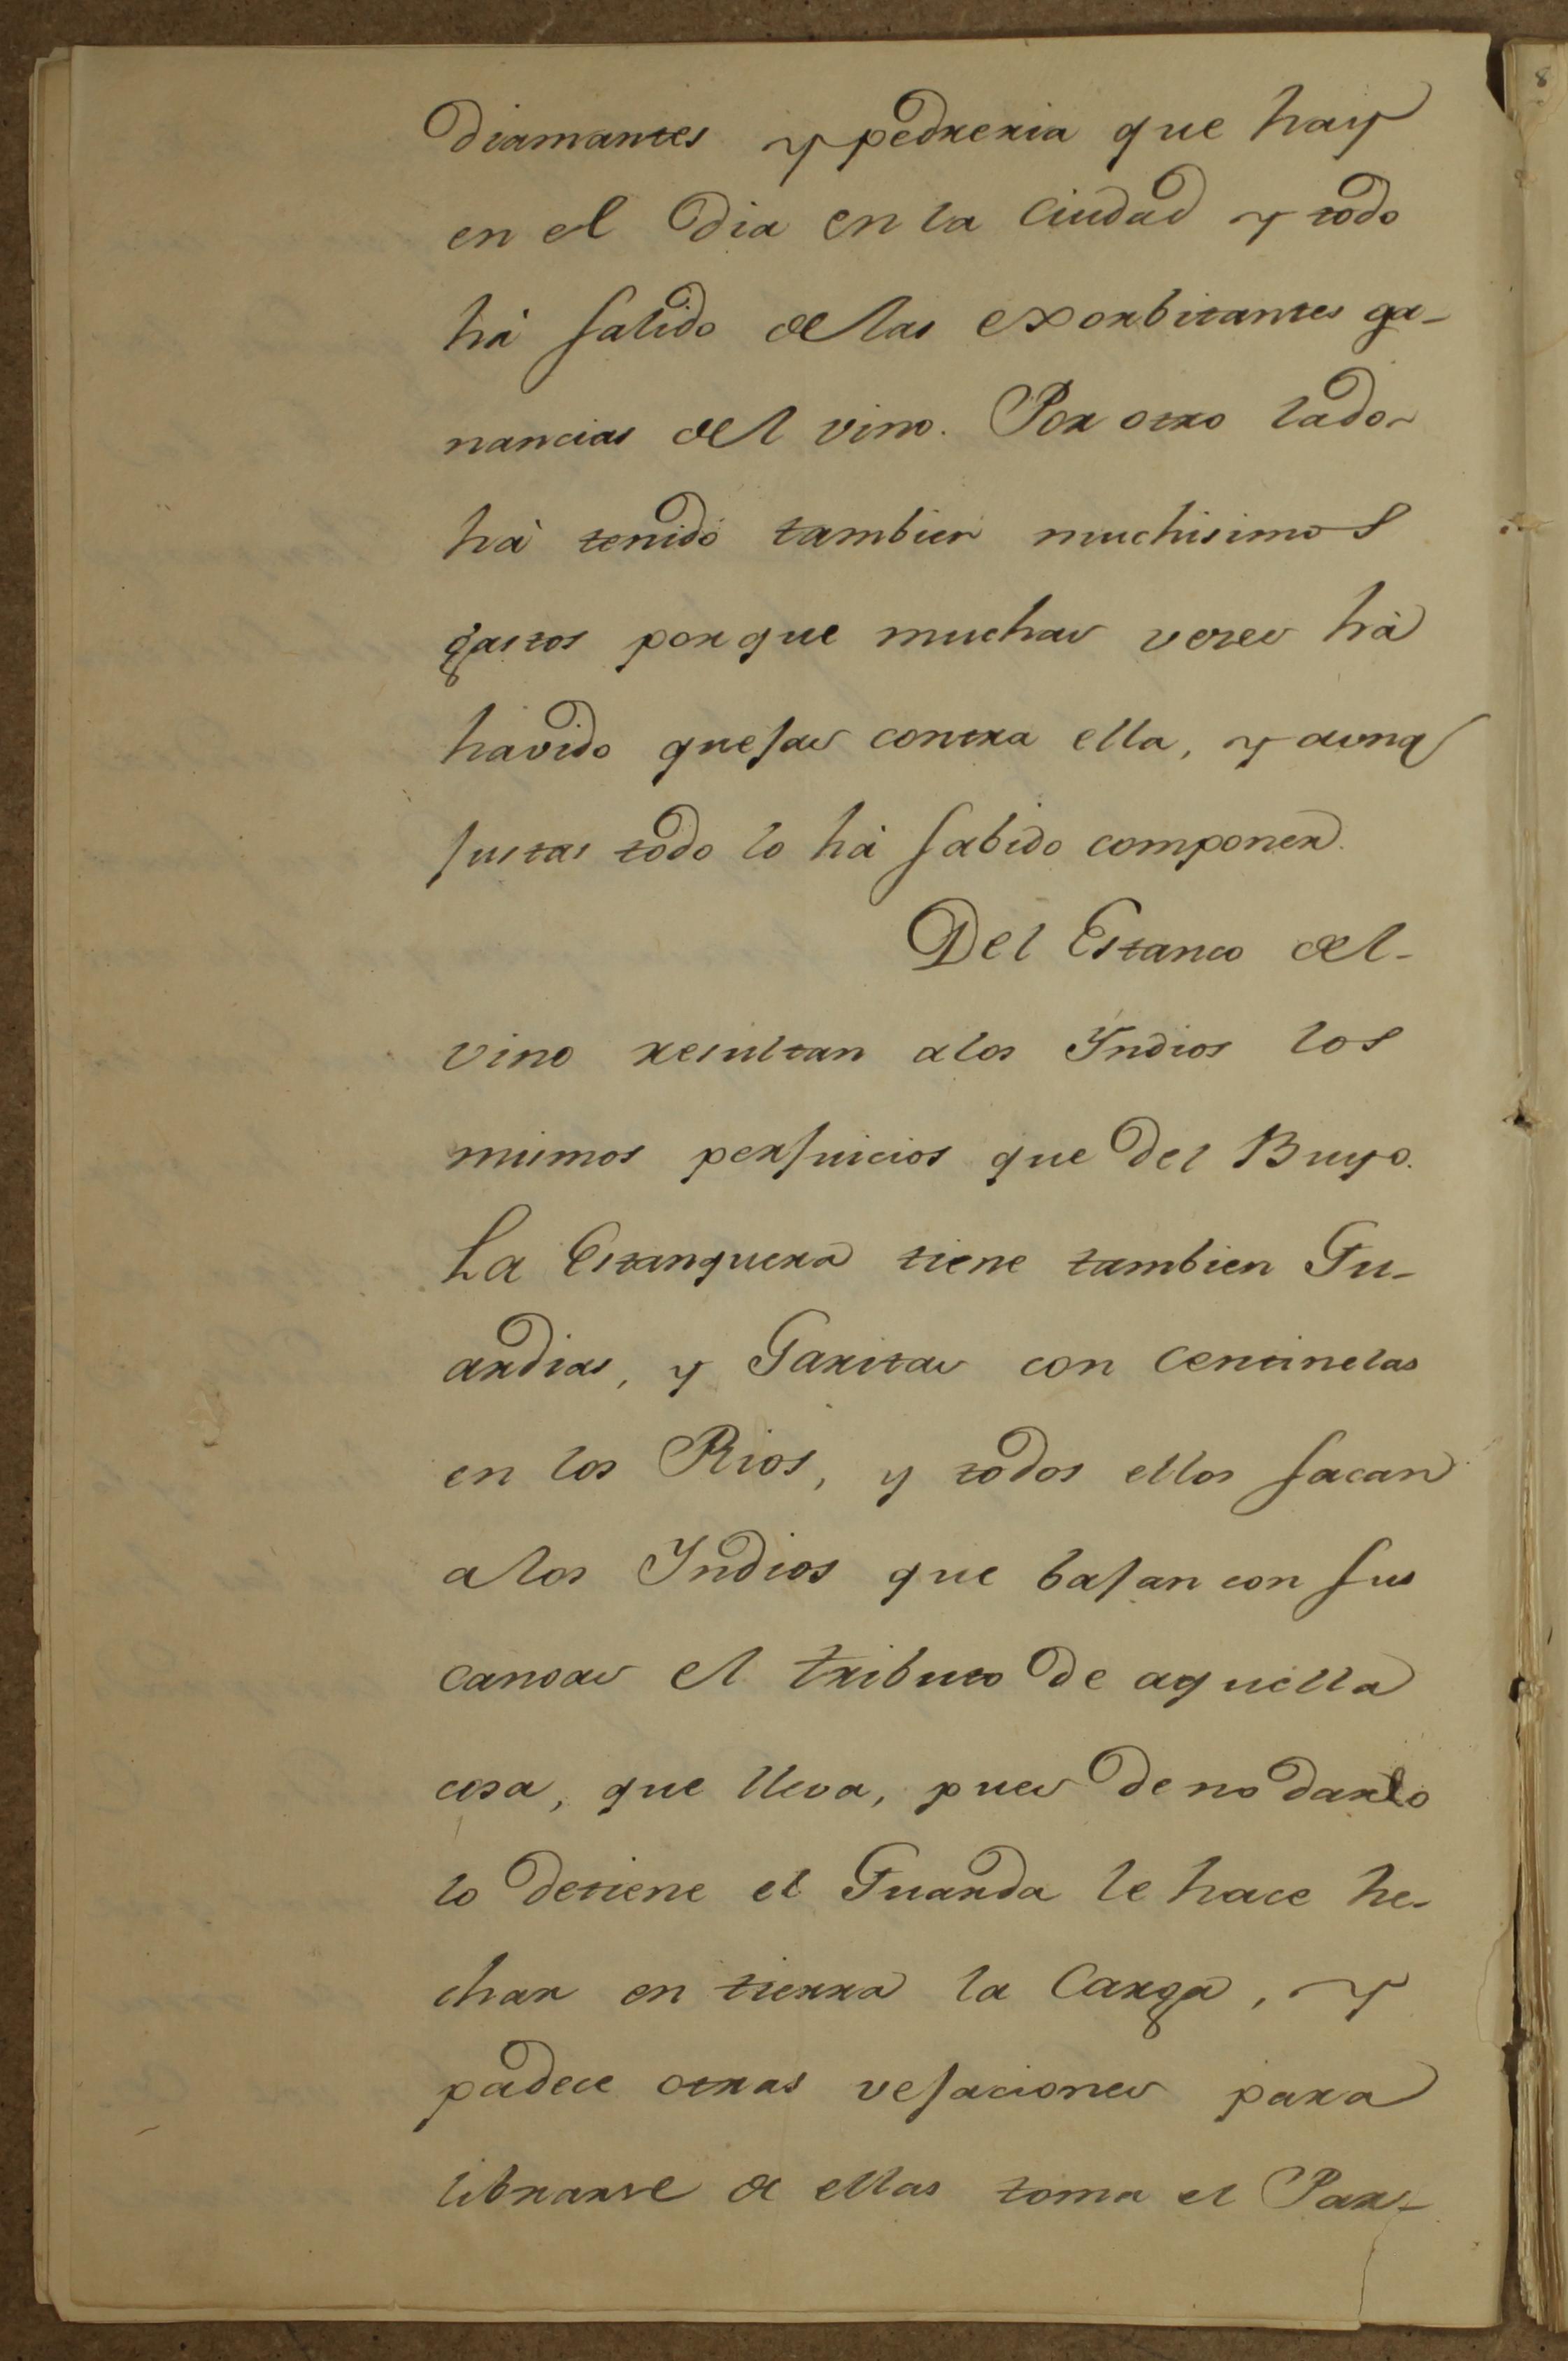 diamantes y pedreria que hay
en el dia en la Ciudad y todo
há salido de las exorbitantes ga-
nancias del vino. Por otro lado
há tenido tambien muchisimos
gastos porque muchas veces há
havido quejas contra ella, y aunq
justas todo lo há sabido componer.
Del Estanco del
vino resultan a los Yndios los
mismos perjuicios que del Buyo.
La Estanquera tiene tambien Gu-
ardias, y Garitas con Centinelas
en los Rios, y todos ellos sacan
a los Yndios que bajan con sus
canoas el tributo de aquella
cosa, que lleva, pues de no darlo
lo detiene el Guarda le hace he-
char en tierra la Carga, y
padece otras vejaciones para
librarse de ellas toma el Par-
8